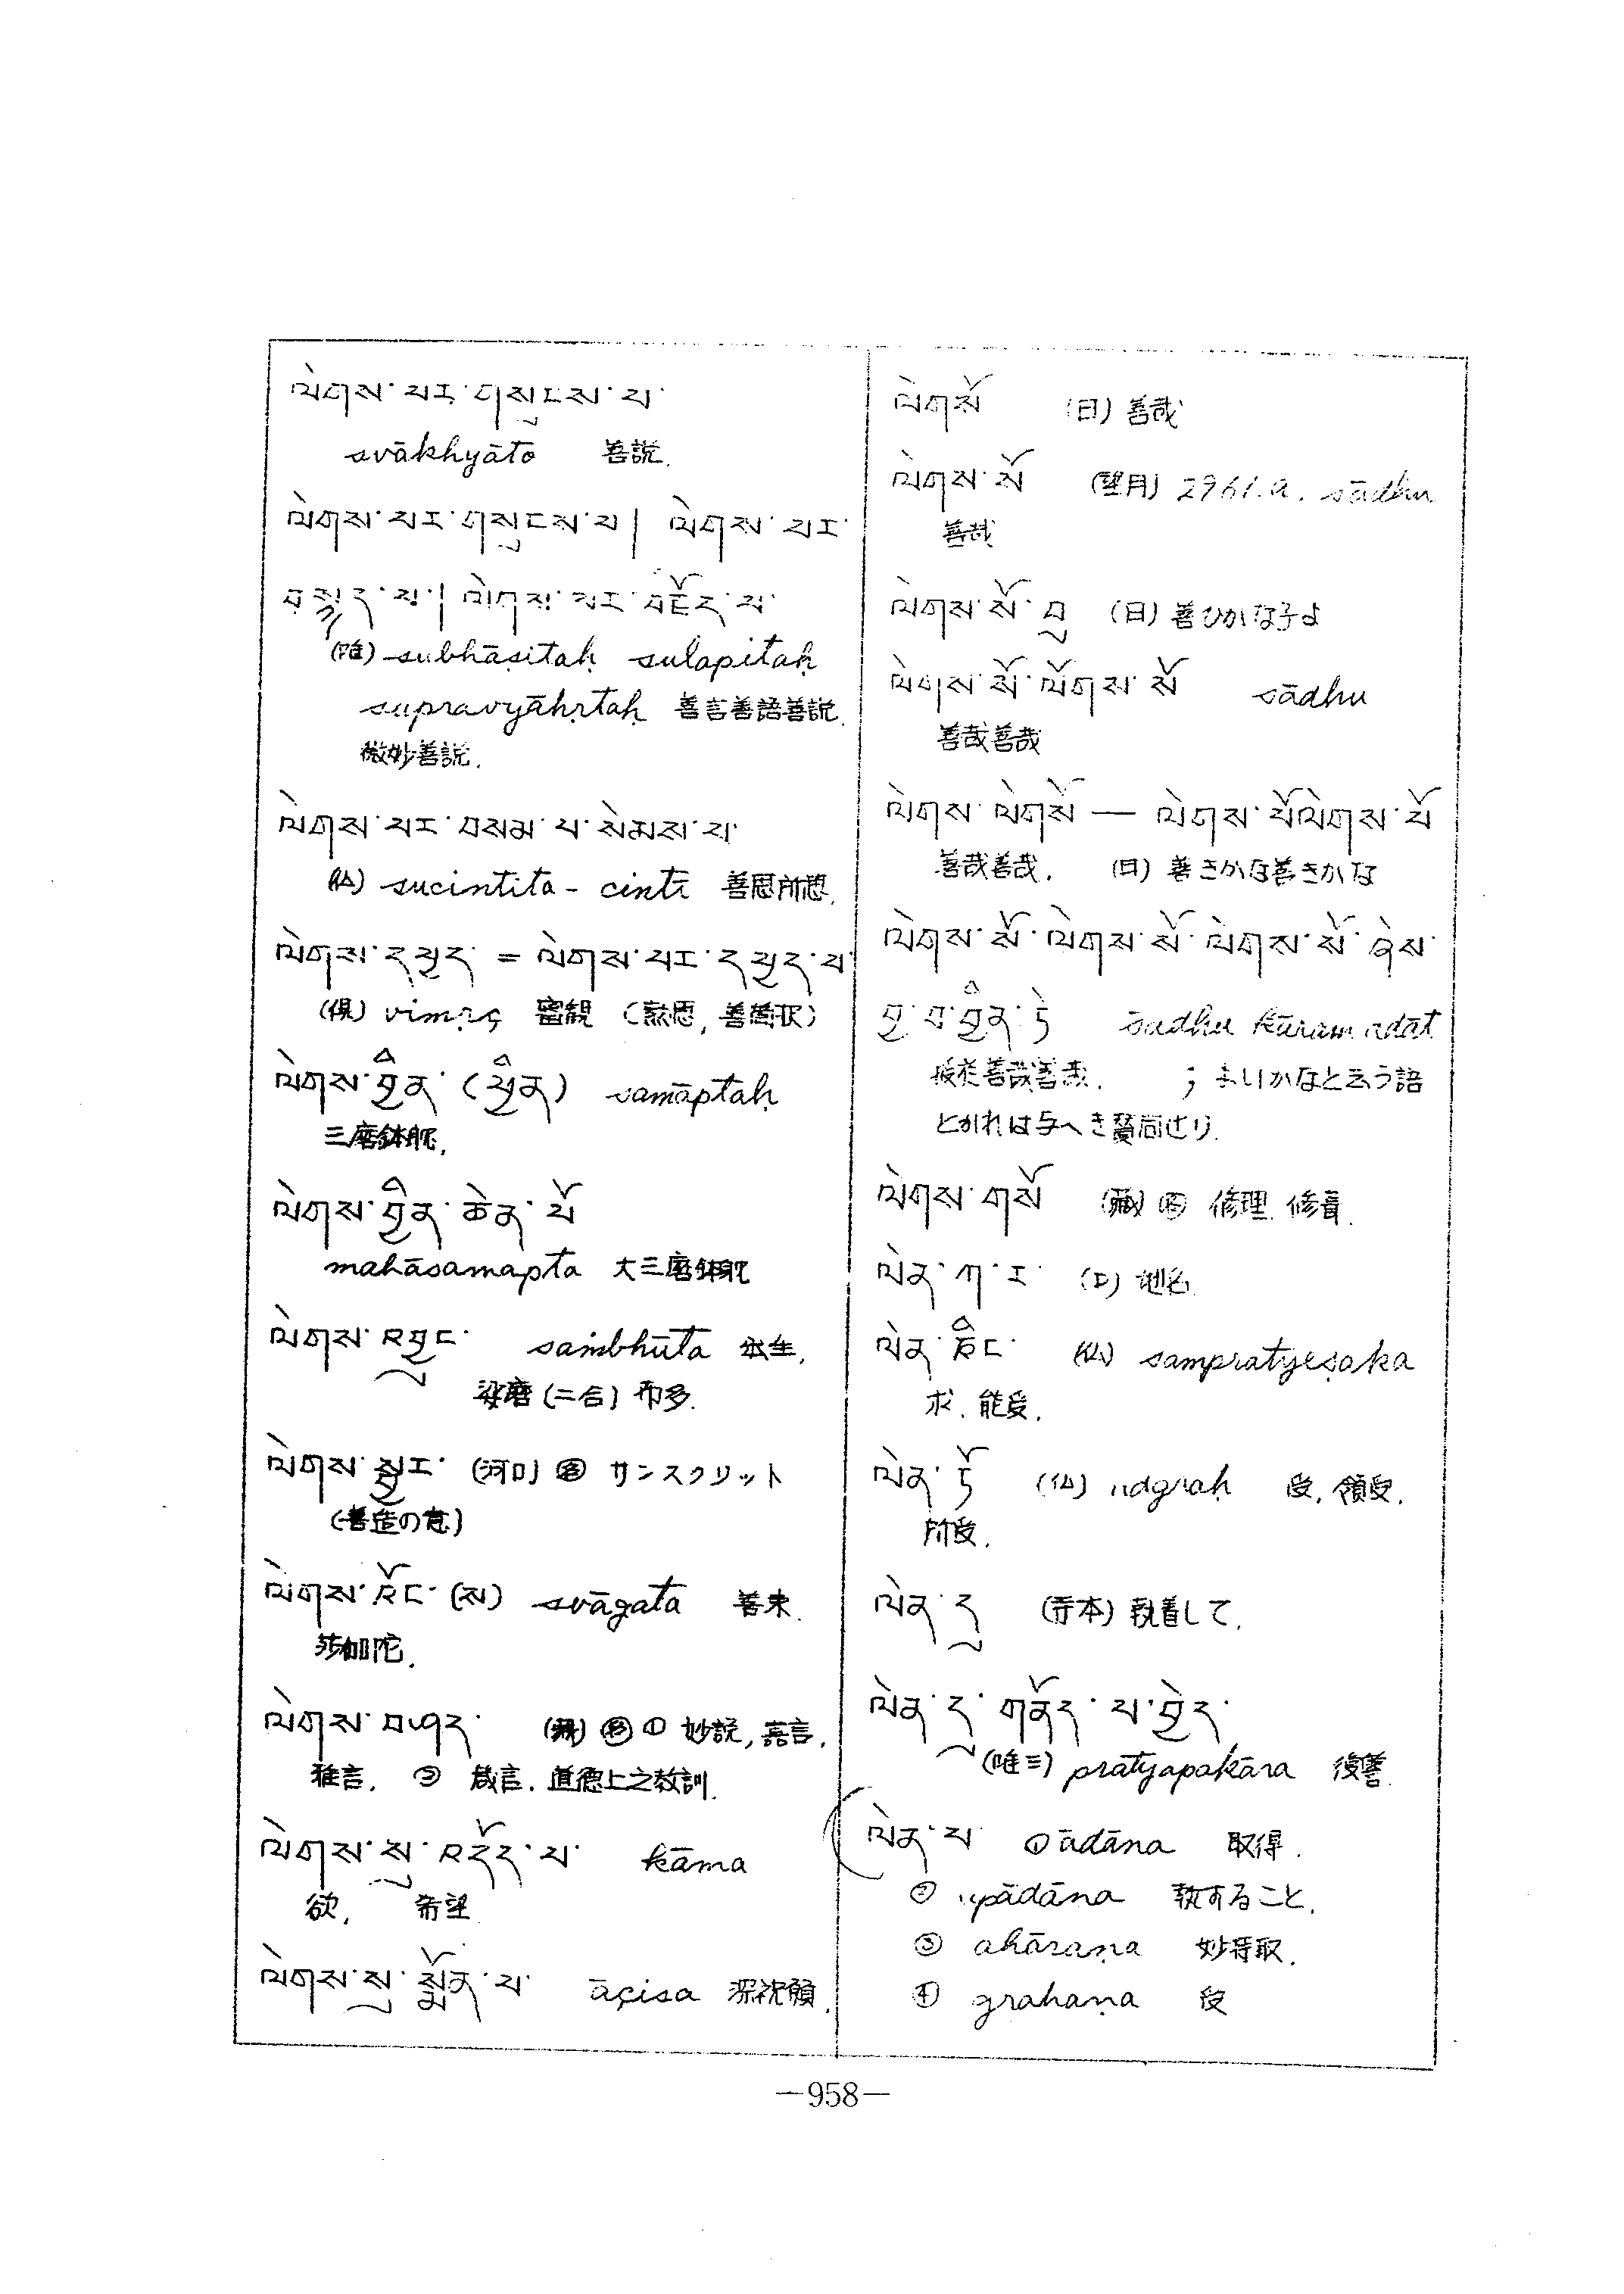 ལེགས་པར་གསུངས་པ་
svākhyāto 善説.
ལེགས་པར་གསུངས་པ། ལེགས་པར་
བསླད་པ། ལེགས་པར་བརྗོད་པ་
(唯) subhāṣitaḥ sulapitaḥ
supravyāhṛtaḥ 善言善語善説.
微妙善説.
ལེགས་པར་བསམ་པ་སེམས་པ་
(仏) sucintita - cintī 善思所思.
ལེགས་དཔྱད་ = ལེགས་པར་དཔྱད་པ་
(倶) vimṛç 審観
ལེགས་བྱིན་ (ཕྱིན) samāptaḥ
三磨鉢
ལེགས་བྱིན་ཆེན་པོ
mahāsamapta 大三磨鉢
ལེགས་འབྱུང་ saṁbhūta 生.
磨 (二合) 布多.
ལེགས་སྦྱར་ (河口) サンスクリット
(善造の意)
ལེགས་འོང་ svāgata 善来.
莎伽陀.
ལེགས་བཤད་ (蔵) ① 妙説, 嘉言,
雅言. ② 箴言. 道徳上之教訓.
ལེགས་སུ་འདོད་པ་ kāma
欲, 希望
ལེགས་སུ་སྨོན་པ་ āçisa 深祝願.
ལེགསོ (日) 善哉
ལེགས་སོ (望月) 2961.a. sādhu
善哉
ལེགས་སོ་བུ (日) 善ひかな子よ
ལེགས་སོ་ལོགས་སོ sādhu
善哉善哉
ལེགས་ལེགསོ — ལེགས་སོལེགས་སོ
善哉善哉. (日) 善きかな善きかな
ལེགས་སོ་ལེགས་སོ་ལེགས་སོ་ཞེས་
བྱ་བ་བྱིན་ཏེ sādhu kāram adāt
善哉善哉. ; よいかなと云う語
とかれは与へき賛同せり.
ལེགས་གསོ (蔵) 修理. 修
ལེན་ཀ་ར་ 地名
ལེན་ཅིང་ (仏) sampratyeṣaka
求. 能受.
ལེན་ཏོ (仏) udgraḥ 受, 領受.
所受.
ལེན་དུ (寺本) 執着して.
ལེན་དུ་གནོད་པ་བྱེད་
(唯三) pratyapakāra 復讐
ལེན་པ ① ādāna 取得.
② upādāna 執すること.
③ ahāraṇa 妙得取.
④ grahaṇa 受
—958—